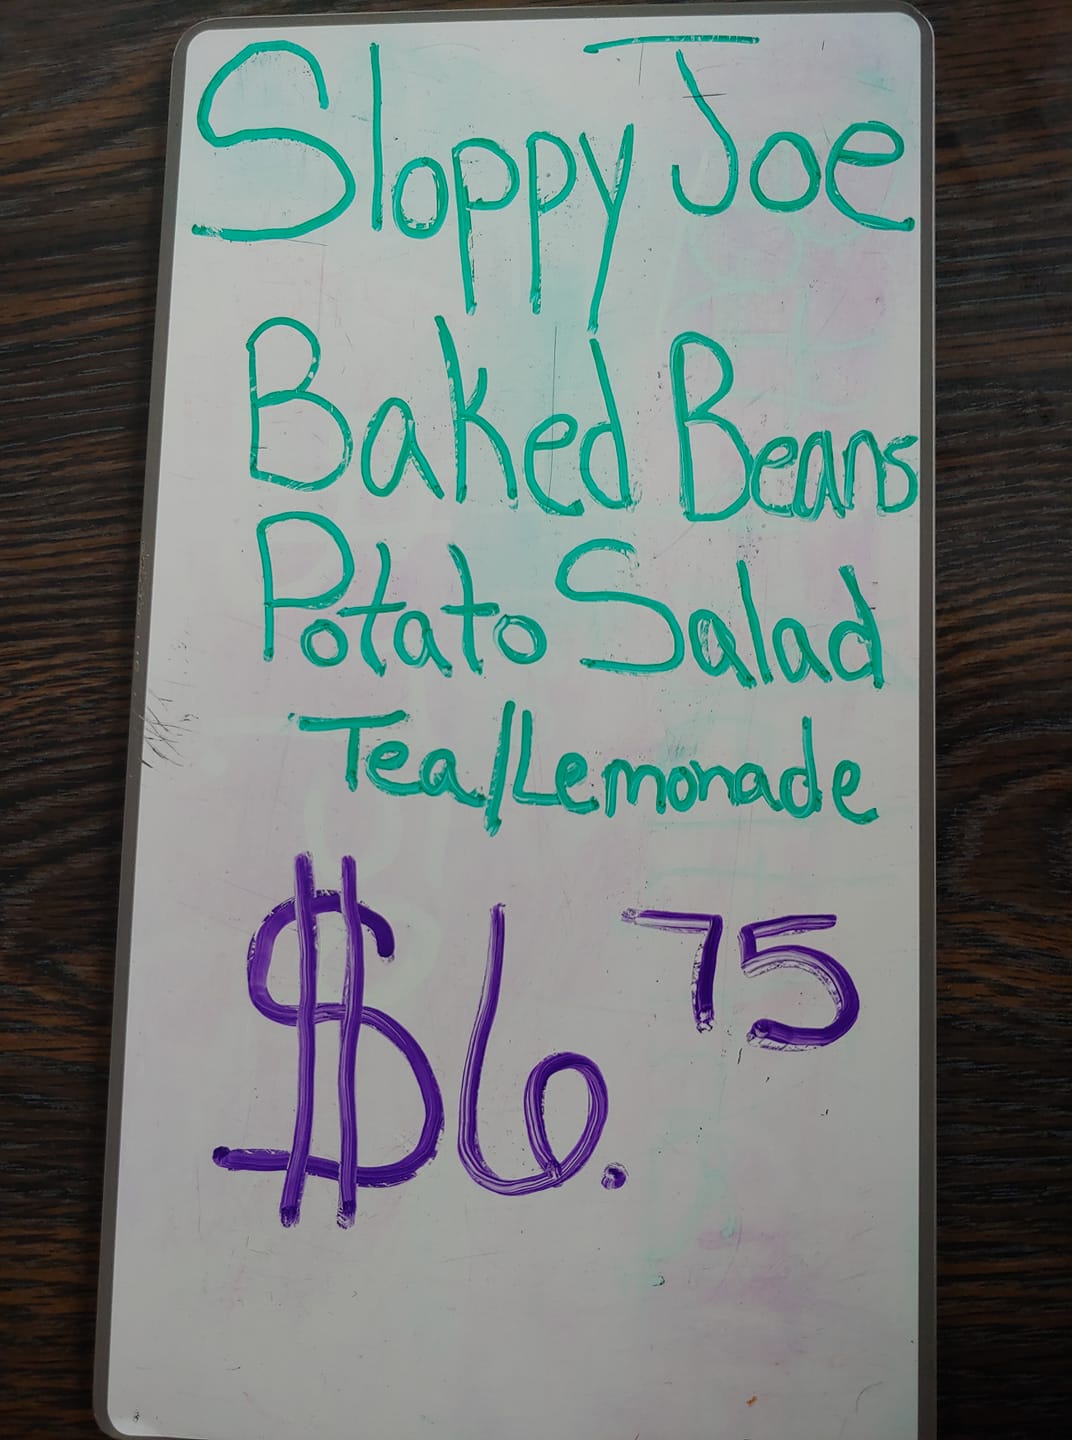 Sloppy Joe
Baked Beans
Potato Salad
Tea/Lemonade
$6.75